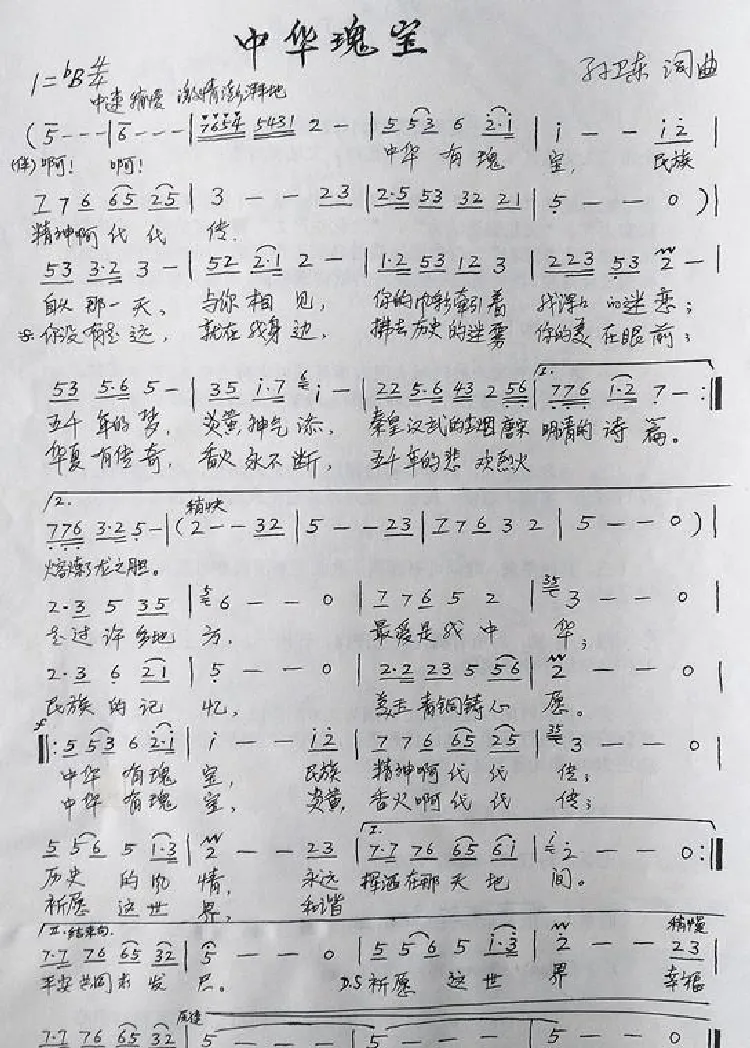 中华瑰宝
1=♭B 4/4
孙卫东 词曲
中速稍慢 激情澎湃地
( 5 - - - | 6 - - - | 7654 5431 2 - | 5 53 6 2·1 | i - - i2 |
(伴)啊! 啊! 中华有瑰宝, 民族
7 7 6 65 25 | 3 - - 23 | 2·5 53 32 21 | 5 - - 0 ) |
精神啊代代传.
53 3·2 3 - | 52 2·1 2 - | 1·2 53 12 3 | 223 53 2 - |
自从那一天, 与你相见, 你的 牵引着 我 的迷恋;
你没有走远, 就在我身边, 拂去历史的迷雾 你的美在眼前;
53 5·6 5 - | 35 i·7 i - | 22 5·6 43 2 56 | 1. 776 1·2 7 - :||
五千年的梦, 炎黄神气添, 秦皇汉武的 唐宋 明清的诗篇。
华夏有传奇, 香火永不断, 五千年的悲欢烈火
2. 稍快
776 3·2 5 - | ( 2 - - 32 | 5 - - 23 | 7 7 6 3 2 | 5 - - 0 ) |
熔炼了龙之胆。
2·3 5 35 | 6 - - 0 | 7 7 6 5 2 | 3 - - 0 |
走过许多地方, 最爱是我中华;
2·3 6 21 | 5 - - 0 | 2·2 23 5 56 | 2 - - 0 |
民族的记忆, 青铜铸心愿。
f
||: 5 53 6 2·1 | i - - i2 | 7 7 6 65 25 | 3 - - 0 |
中华有瑰宝, 民族精神啊代代传;
中华有瑰宝, 炎黄香火啊代代传;
5 56 5 i·3 | 2 - - 23 | 1. 7·7 76 65 6i | 2 - - 0 :||
历史的风情, 永远挥洒在那天地间。
祈愿这世界, 和谐
II. 结束句. 稍慢
7·7 76 65 32 | 5 - - 0 | 5 56 5 i·3 | 2 - - 23 |
平安共同 发展。 D.S 祈愿这世界 幸福
原速
7·7 76 65 32 | 5 - - - | 5 - - - | 5 - - 0 ||